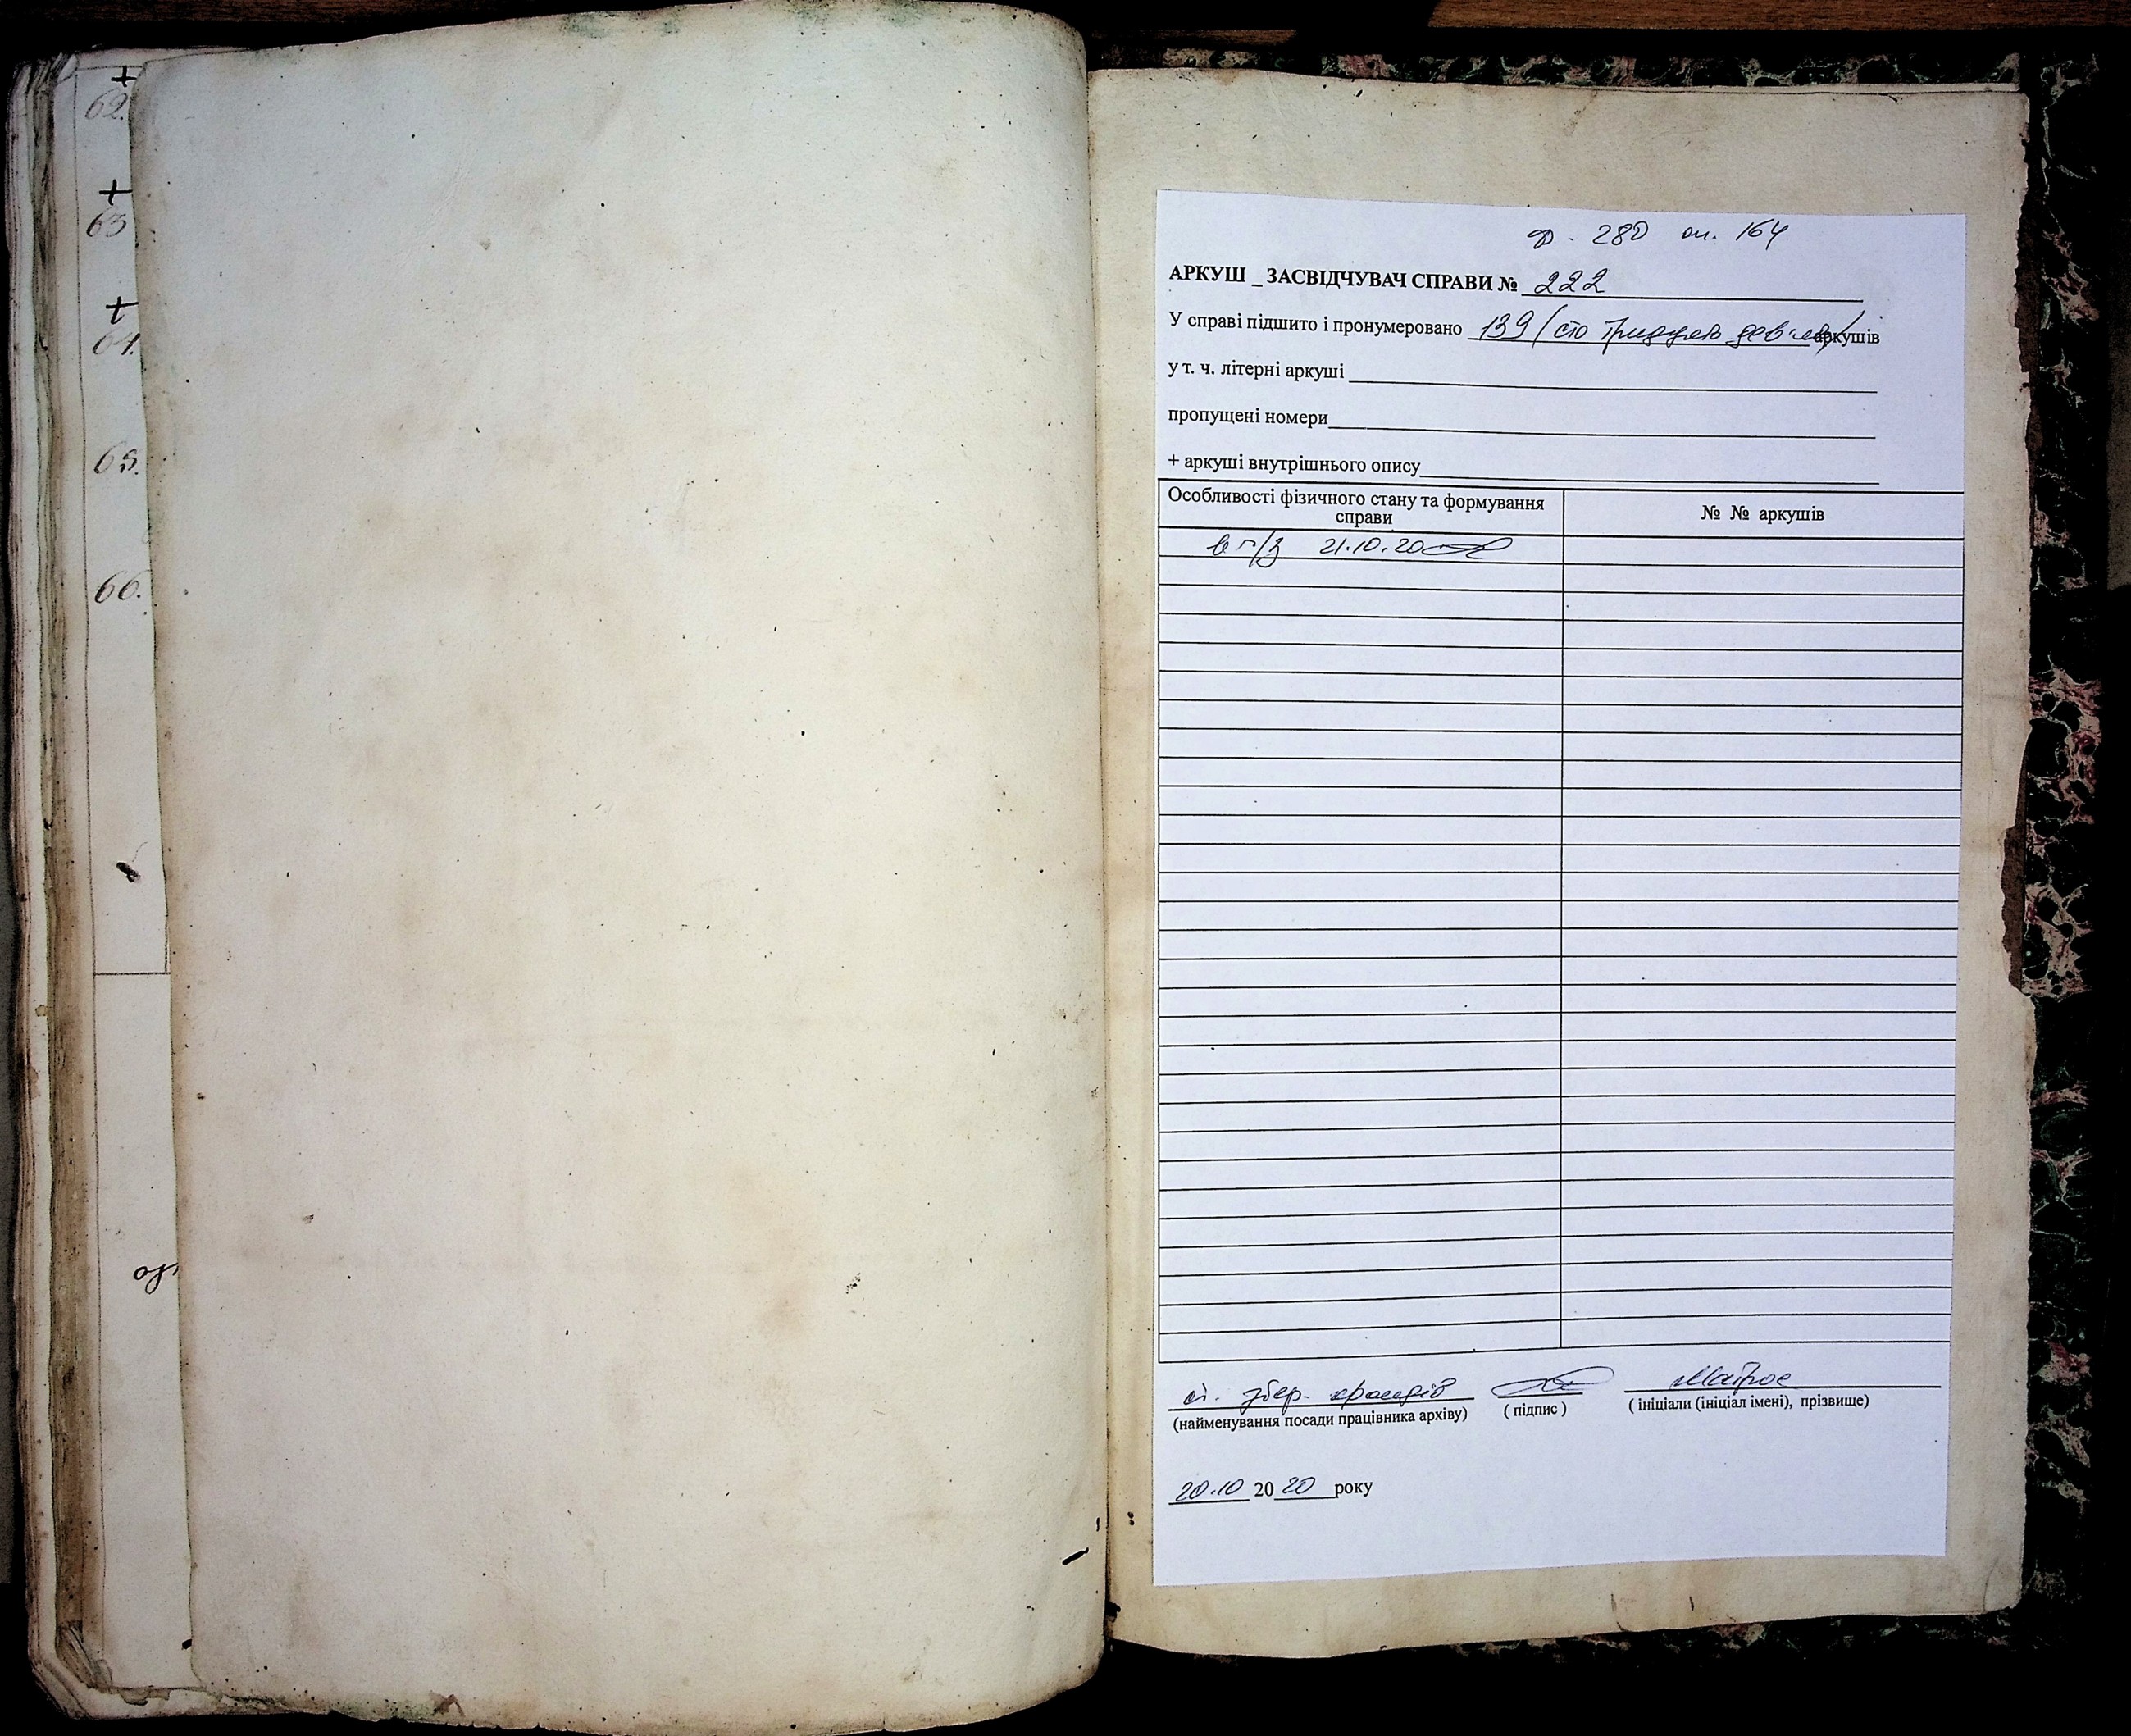 +
62.
+
63
+
64.
65.
66.
ф. 280 оп. 164
АРКУШ _ ЗАСВІДЧУВАЧ СПРАВИ № 222
У справі підшито і пронумеровано 139 (сто тридцять дев'ять) аркушів
у т. ч. літерні аркуші
пропущені номери
+ аркуші внутрішнього опису
Особливості фізичного стану та формування справи
№ № аркушів
21.10.20
ст. збер. фондів
(найменування посади працівника архіву) ( підпис ) ( ініціали (ініціал імені), прізвище)
20.10 2020 року